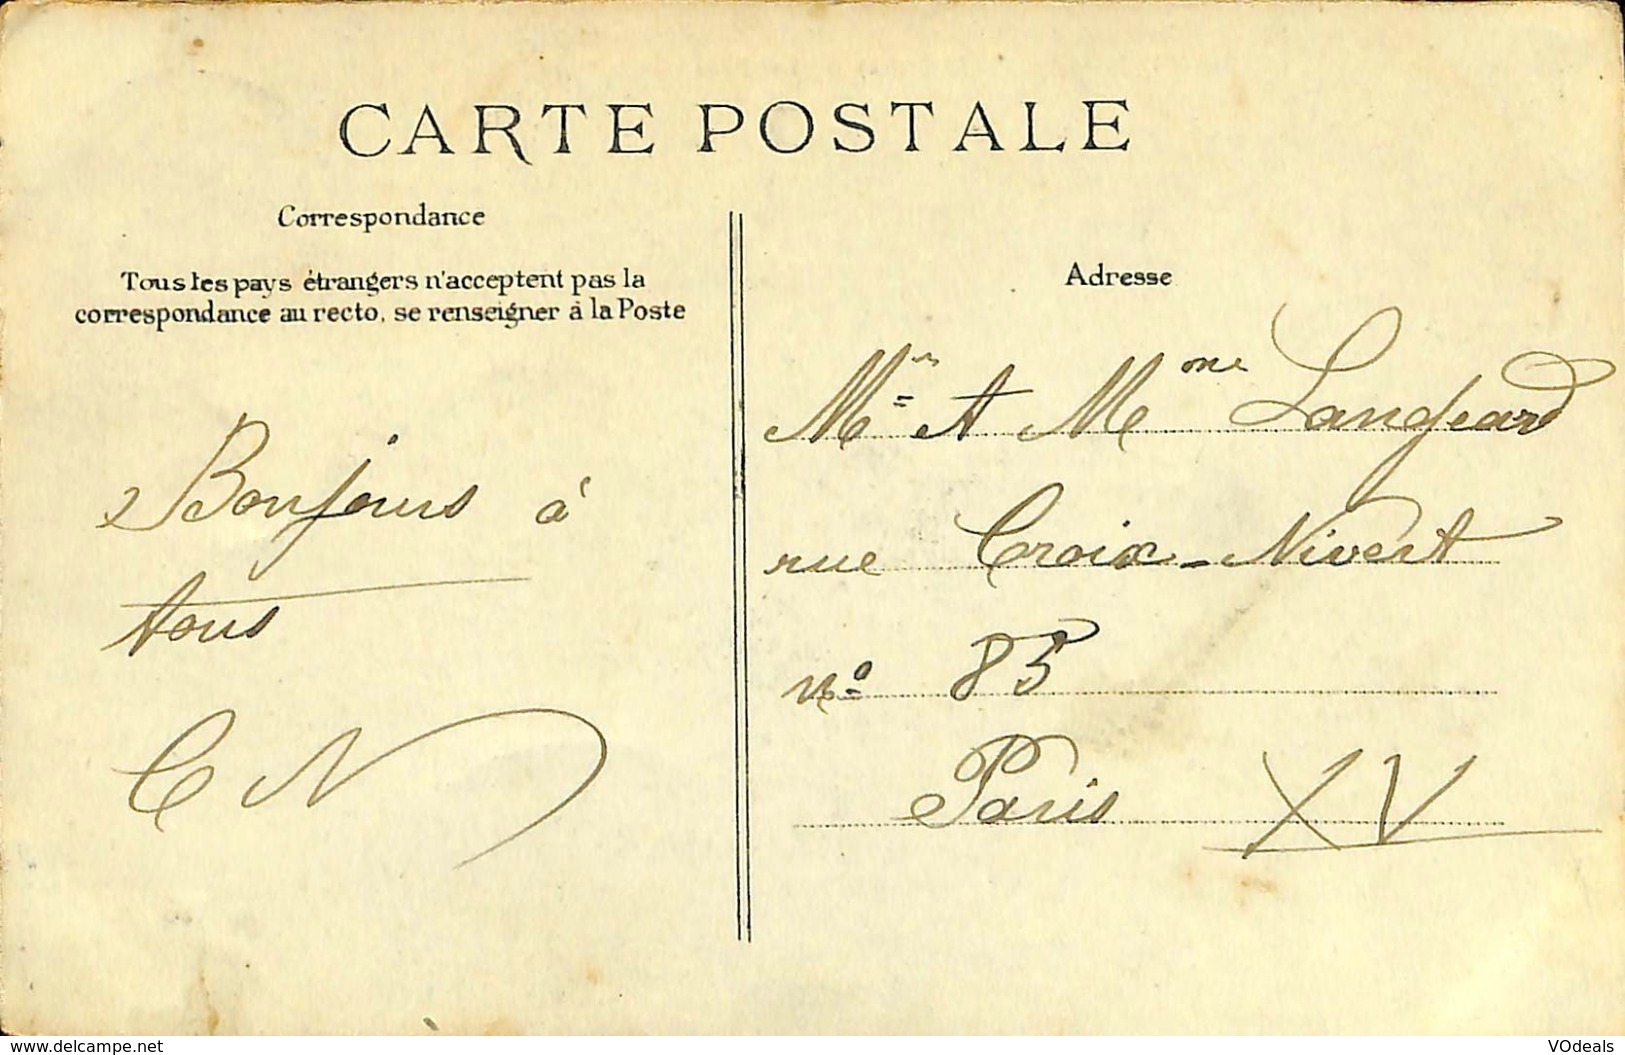 CARTE POSTALE
Correspondance
Tous les pays étrangers n'acceptent pas la
correspondance au recto, se renseigner à la Poste
Bonjour à
tous
C N
Adresse
Mr et Mme Langeard
rue Croix-Nivert
No 85
Paris XV
www.delcampe.net
VOdeals